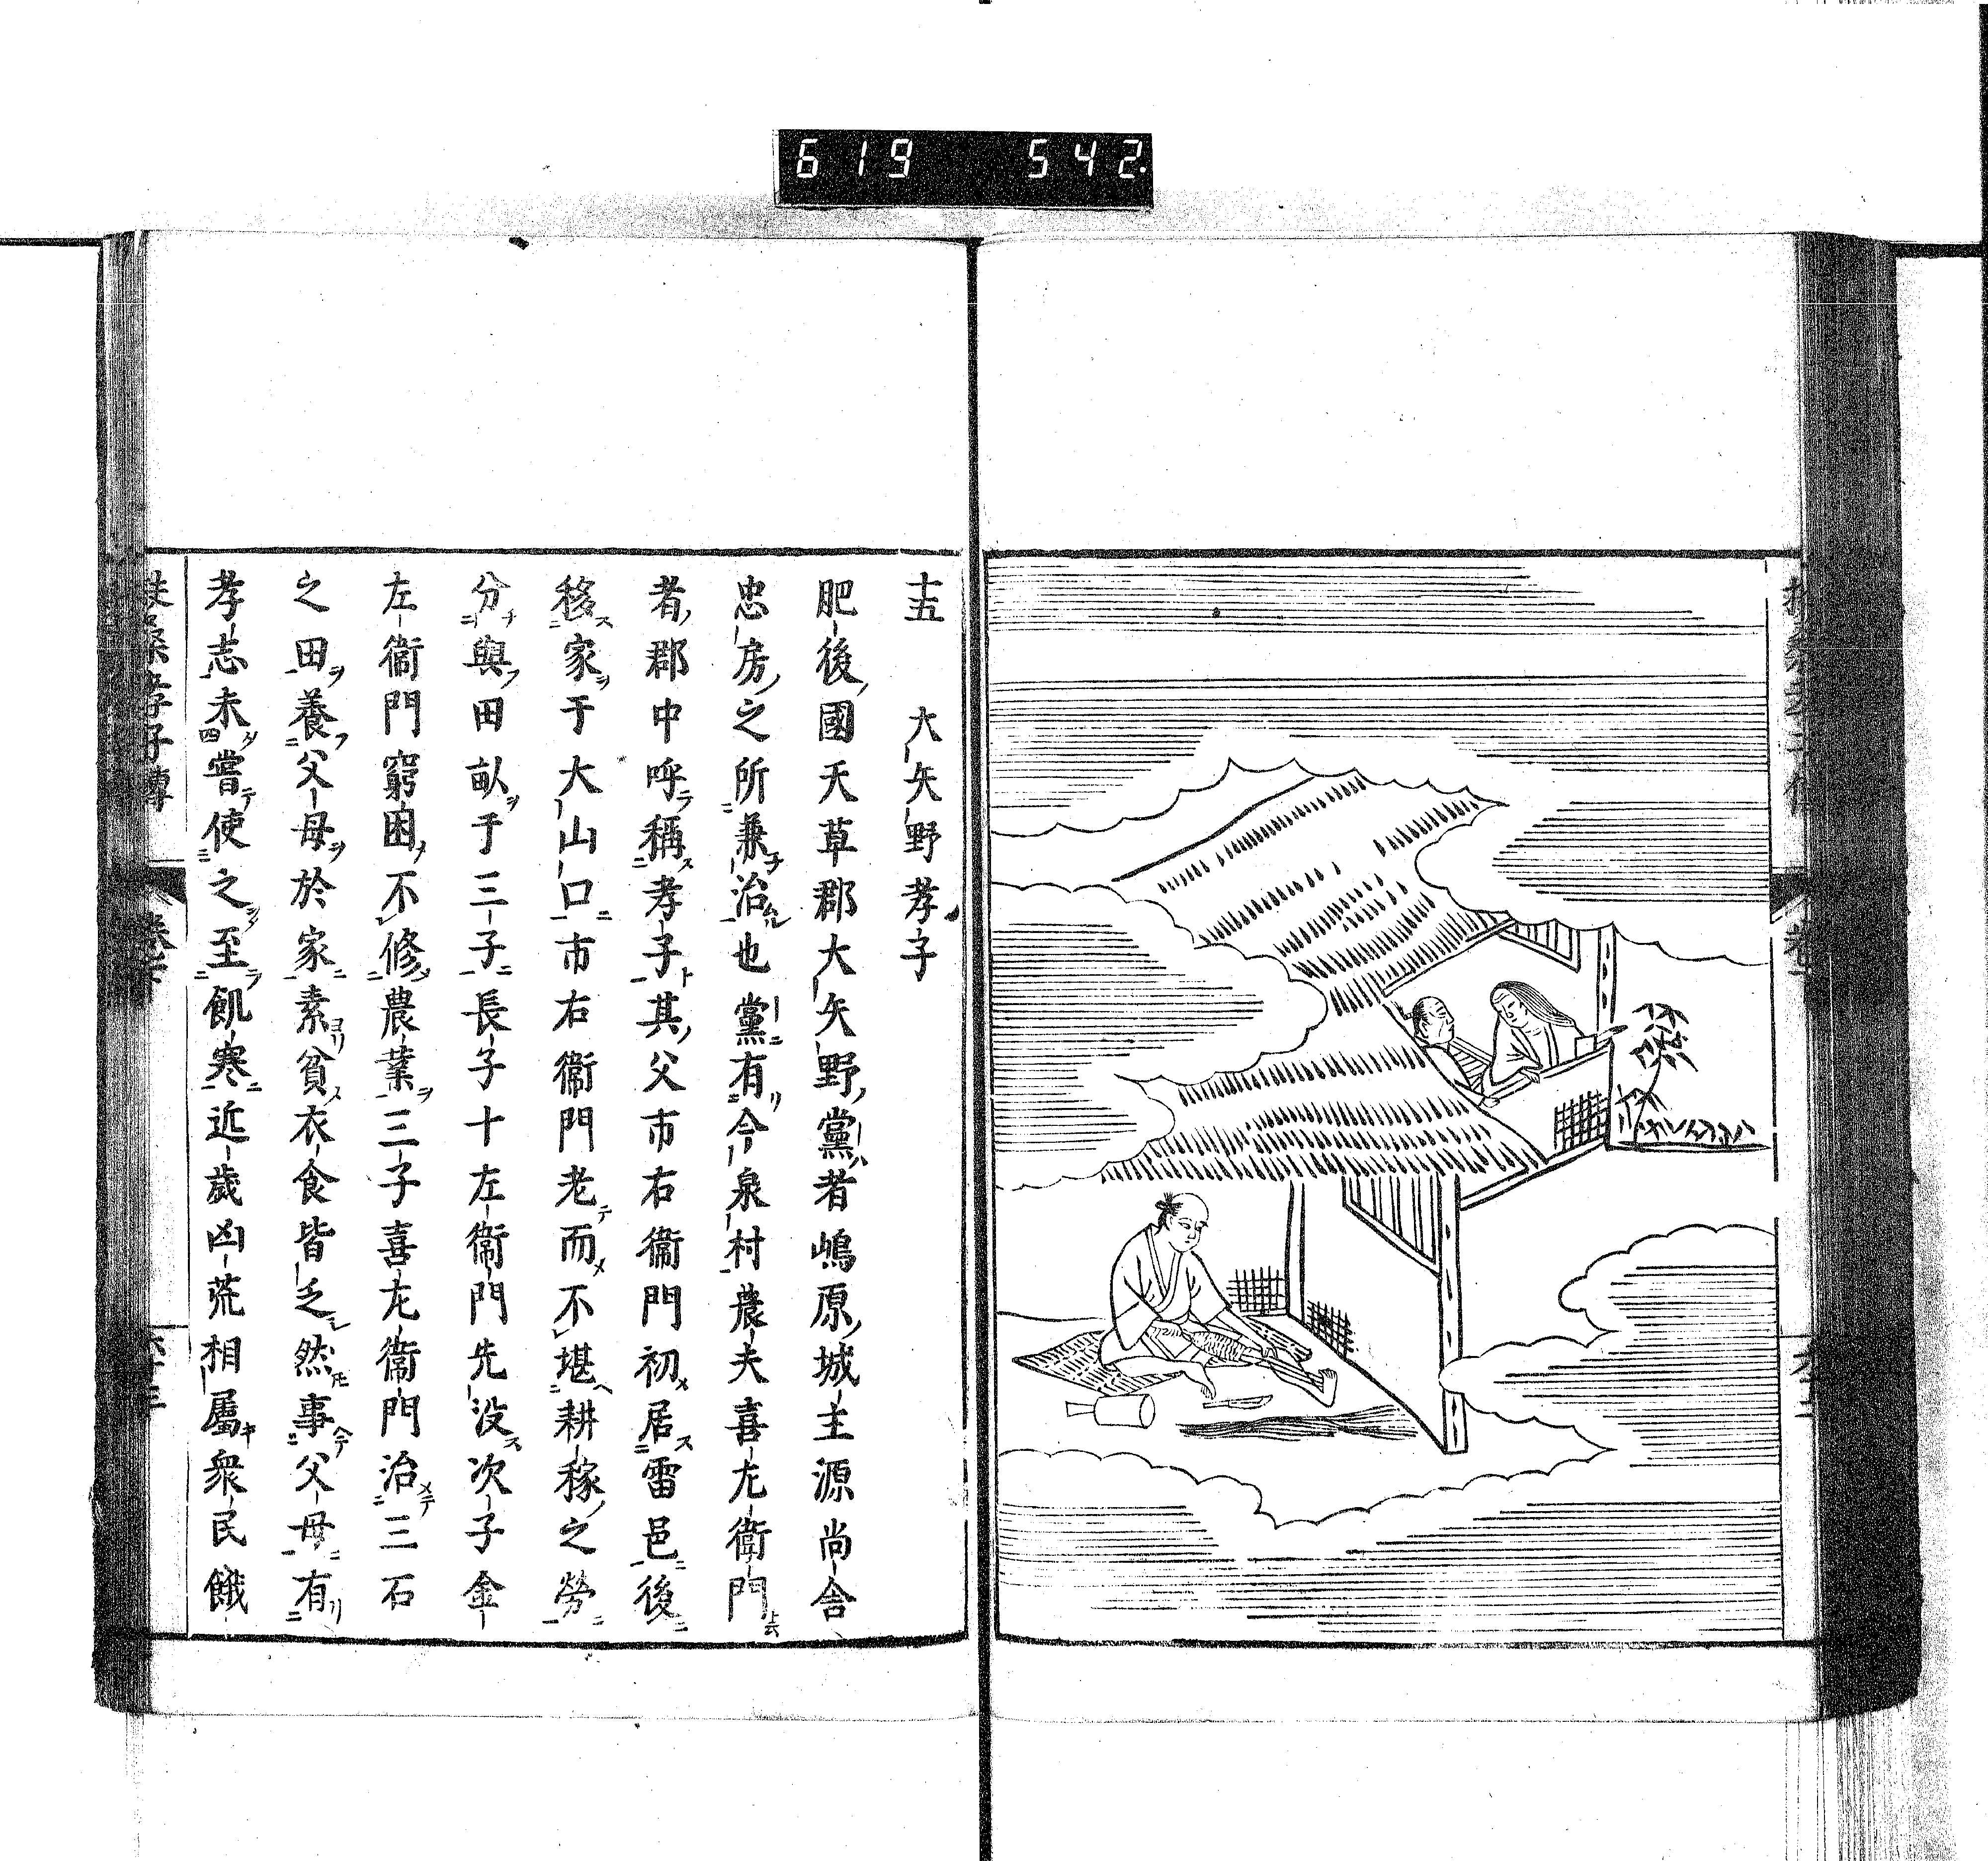 619 542
十五 大矢野孝子
肥後國天草郡大矢野黨者嶋原城主源尚舎
忠房之所兼治也黨有今泉村農夫喜左衛門
者郡中呼稱孝子其父市右衞門初居雷邑後
移家于大山口市右衞門老而不堪耕稼之勞
分與田畝于三子長子十左衞門先没次子金
左衞門窮困不修農業三子喜左衞門治三石
之田養父母於家素貧衣食皆乏然事父母有
孝志未嘗使之至飢寒近歳凶荒相屬衆民餓
扶桑孝子傳